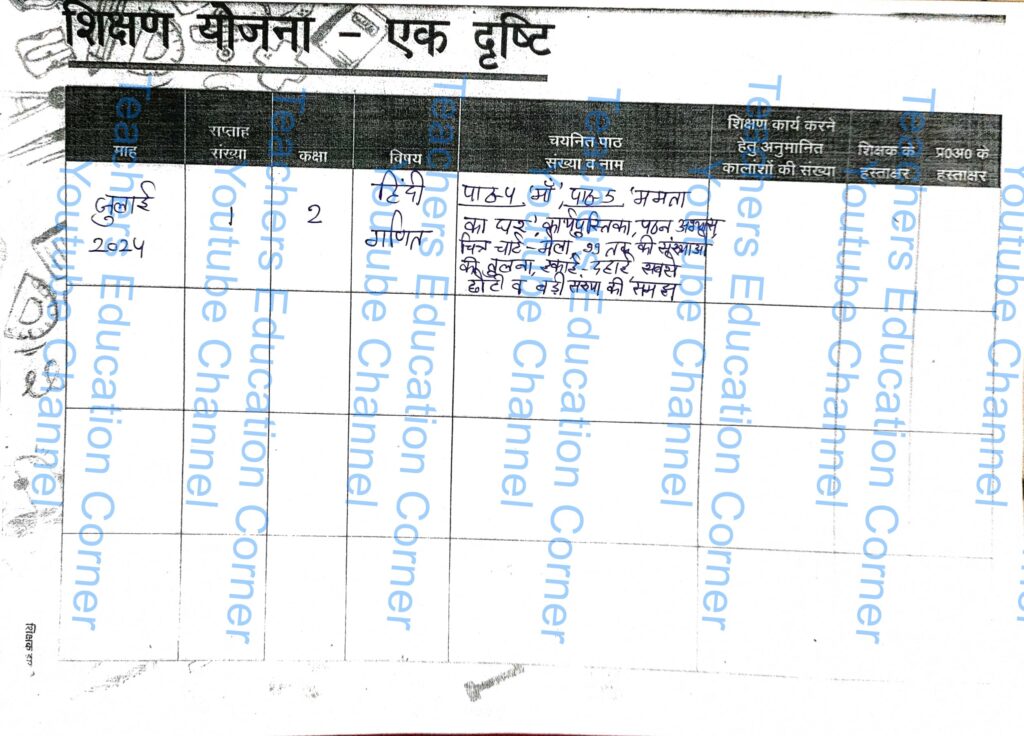 शिक्षण योजना – एक दृष्टि
माह
सप्ताह
संख्या
कक्षा
विषय
चयनित पाठ
संख्या व नाम
शिक्षण कार्य करने
हेतु अनुमानित
कालांशों की संख्या
शिक्षक के
हस्ताक्षर
प्र0अ0 के
हस्ताक्षर
जुलाई
2024
1
2
हिंदी
गणित
पाठ-4 'माँ', पाठ-5 'ममता
का घर', कार्यपुस्तिका, पठन अभ्यास
चित्र चार्ट - मेला, 99 तक की संख्याओं
की तुलना, इकाई, दहाई, सबसे
छोटी व बड़ी संख्या की समझ
Teachers Education Corner
Youtube Channel
Teachers Education Corner
Youtube Channel
Teachers Education Corner
Youtube Channel
Teachers Education Corner
Youtube Channel
Teachers Education Corner
Youtube Channel
Teachers Education Corner
Youtube Channel